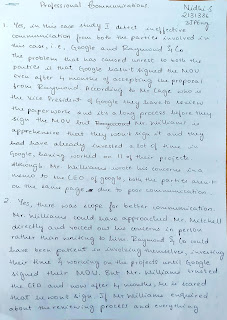 Professional Communications
Nidhi S
2131336
3PEng
1. Yes, in this case study I detect ineffective
communication from both the parties involved in
this case, i.e., Google and Raymond & Co.
The problem that has caused worst to both the
parties is that Google hasn't signed the MOU
even after 4 months of accepting the proposal
from Raymond. According to Mr Cage who is
the Vice President of Google they have to review
the paperwork and its a long process before they
sign the MOU but Raymond and Williams are
apprehensive that they won't sign it and they
had have already invested a lot of time in
Google, having worked on 11 of their projects
although Mr. Williams wrote his concerns in a
memo to the CEO of google, both the parties aren't
on the same page due to poor communication.
2. Yes, there was scope for better communication.
Mr. Williams could have approached Mr. Mitchell
directly and voiced out his concerns in person
rather than writing to him. Raymond & Co could
have been patient in involving themselves, investing
their time & working on the projects until Google
signed their MOU. But Mr. Williams trusted
the CEO and now after 4 months, he is scared
that he wont sign. If Mr Williams enquired
about the reviewing process and everything